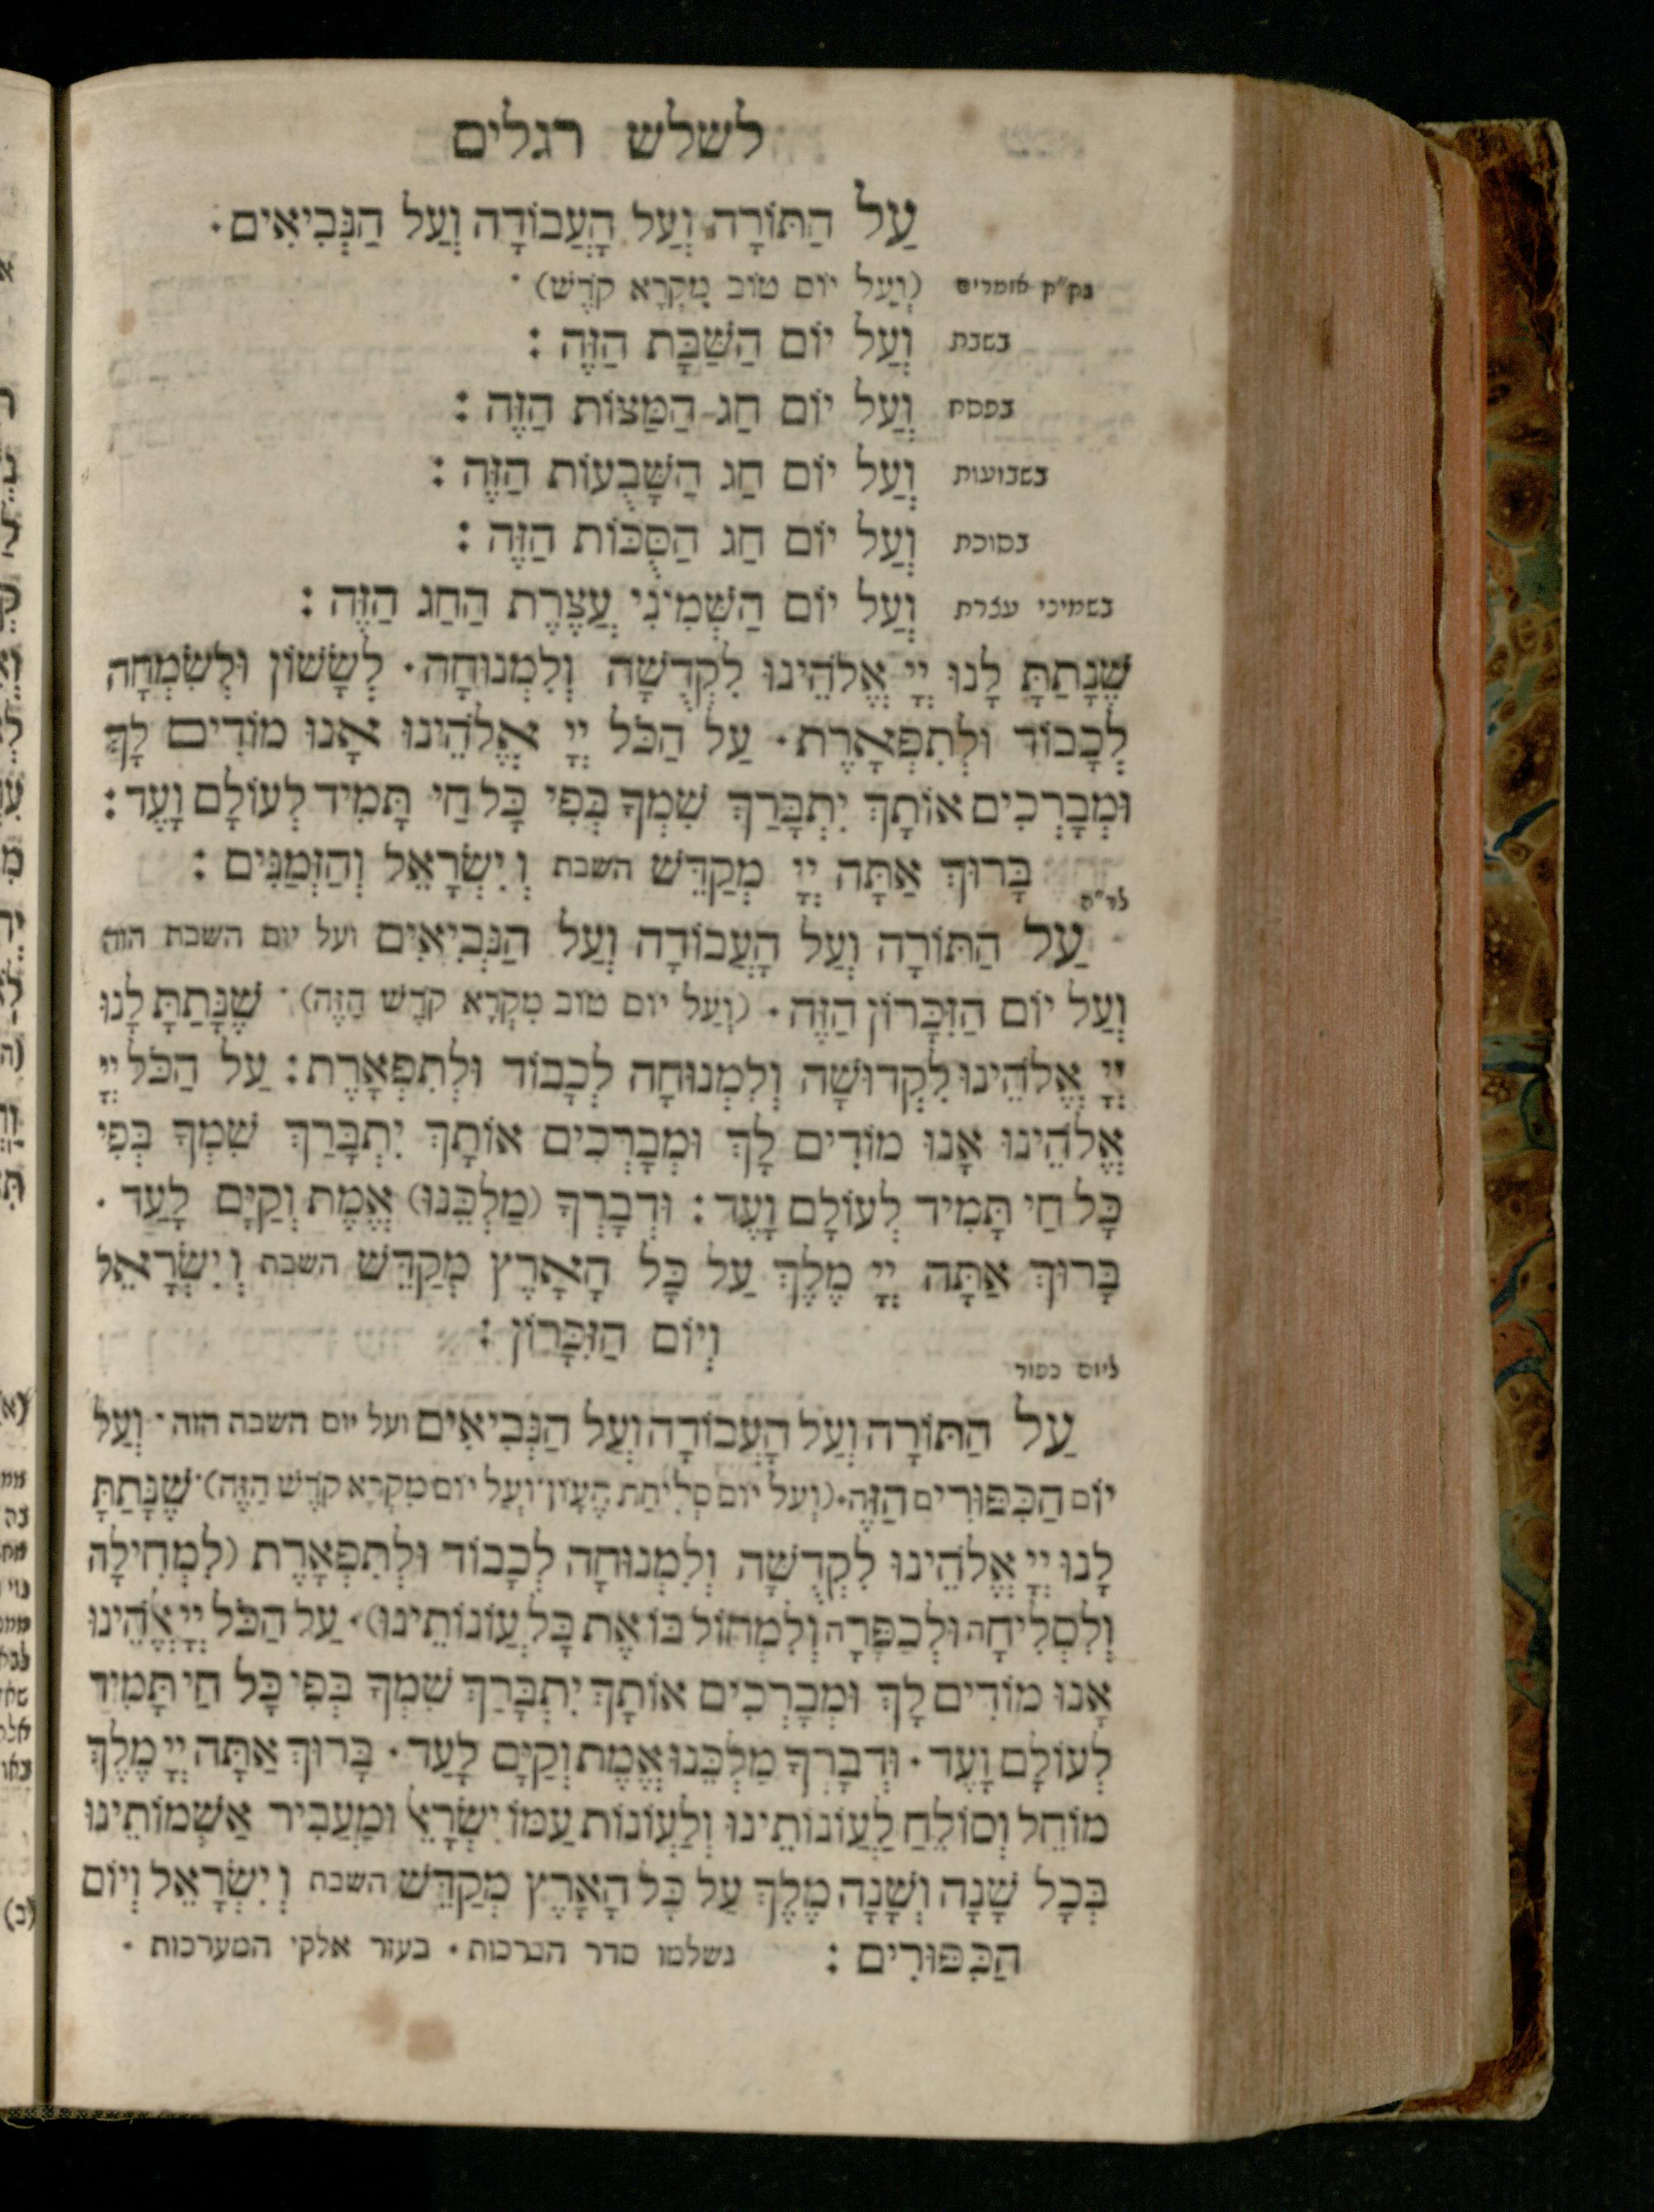 לשלש רגלים
עַל הַתּוֹרָה וְעַל הָעֲבוֹדָה וְעַל הַנְּבִיאִים·
בק״ק אומרים (וְעַל יוֹם טוֹב מִקְרָא קֹדֶשׁ)·
בשבת וְעַל יוֹם הַשַּׁבָּת הַזֶּה :
בפסח וְעַל יוֹם חַג הַמַּצּוֹת הַזֶּה :
בשבועות וְעַל יוֹם חַג הַשָּׁבֻעוֹת הַזֶּה :
בסוכת וְעַל יוֹם חַג הַסֻּכּוֹת הַזֶּה :
בשמיני עצרת וְעַל יוֹם הַשְּׁמִינִי עֲצֶרֶת הַחַג הַזֶּה :
שֶׁנָתַתָּ לָנוּ יְיָ אֱלֹהֵינוּ לִקְדֻשָּׁה וְלִמְנוּחָה· לְשָׂשׂוֹן וּלְשִׂמְחָה
לְכָבוֹד וּלְתִפְאָרֶת· עַל הַכֹּל יְיָ אֱלֹהֵינוּ אָנוּ מוֹדִים לָךְ
וּמְבָרְכִים אוֹתָךְ יִתְבָּרַךְ שִׁמְךָ בְּפִי כָּל חַי תָּמִיד לְעוֹלָם וָעֶד :
בָּרוּךְ אַתָּה יְיָ מְקַדֵּשׁ השבת וְיִשְׂרָאֵל וְהַזְּמַנִּים :
לר״ה
עַל הַתּוֹרָה וְעַל הָעֲבוֹדָה וְעַל הַנְּבִיאִים ועל יום השבת הזה
וְעַל יוֹם הַזִּכָּרוֹן הַזֶּה· (וְעַל יום טוב מִקְרָא קֹדֶשׁ הַזֶּה)· שֶׁנָּתַתָּ לָנוּ
יְיָ אֱלֹהֵינוּ לִקְדוּשָׁה וְלִמְנוּחָה לְכָבוֹד וּלְתִפְאָרֶת : עַל הַכֹּל יְיָ
אֱלֹהֵינוּ אָנוּ מוֹדִים לָךְ וּמְבָרְכִים אוֹתָךְ יִתְבָּרַךְ שִׁמְךָ בְּפִי
כָּל חַי תָּמִיד לְעוֹלָם וָעֶד : וּדְבָרְךָ (מַלְכֵּנוּ) אֱמֶת וְקַיָּם לָעַד ·
בָּרוּךְ אַתָּה יְיָ מֶלֶךְ עַל כָּל הָאָרֶץ מְקַדֵּשׁ השבת וְיִשְׂרָאֵל
וְיוֹם הַזִּכָּרוֹן :
ליום כפור
עַל הַתּוֹרָה וְעַל הָעֲבוֹדָה וְעַל הַנְּבִיאִים ועל יום השבת הזה· וְעַל
יוֹם הַכִּפּוּרִים הַזֶּה·(וְעַל יום סְלִיחַת הֶעָוֹן·וְעַל יום מִקְרָא קֹדֶשׁ הַזֶּה)·שֶׁנָּתַתָּ
לָנוּ יְיָ אֱלֹהֵינוּ לִקְדֻשָּׁה וְלִמְנוּחָה לְכָבוֹד וּלְתִפְאָרֶת (לִמְחִילָה
וְלִסְלִיחָה וּלְכַפָּרָה וְלִמְחוֹל בּוֹ אֶת כָּל עֲוֹנוֹתֵינוּ)· עַל הַכֹּל יְיָ אֱלֹהֵינוּ
אָנוּ מוֹדִים לָךְ וּמְבָרְכִים אוֹתָךְ יִתְבָּרַךְ שִׁמְךָ בְּפִי כָּל חַי תָּמִיד
לְעוֹלָם וָעֶד · וּדְבָרְךָ מַלְכֵּנוּ אֱמֶת וְקַיָּם לָעַד · בָּרוּךְ אַתָּה יְיָ מֶלֶךְ
מוֹחֵל וְסוֹלֵחַ לַעֲוֹנוֹתֵינוּ וְלַעֲוֹנוֹת עַמּוֹ יִשְׂרָאֵל וּמַעֲבִיר אַשְׁמוֹתֵינוּ
בְּכָל שָׁנָה וְשָׁנָה מֶלֶךְ עַל כָּל הָאָרֶץ מְקַדֵּשׁ השבת וְיִשְׂרָאֵל וְיוֹם
הַכִּפּוּרִים : נשלמו סדר הברכות· בעזר אלקי המערכות ·